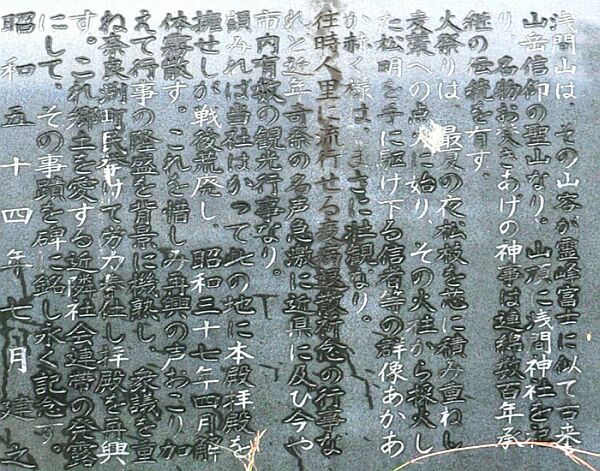 浅間山は、その山容が霊峰富士に似て古来
山岳信仰の聖山なり。山頂に浅間神社を祀
り、名物お焚きあげの神事は連綿数百年承
継の伝統を有す。
火祭りは、最夏の夜松枝を芯に積み重ねし
麦藁への点火に始り、その火柱から採火し
た松明を手に駆け下る信者等の群像あかあ
か赫く様は、まさに壮観なり。
往時人里に流行せる疫病退散祈念の行事な
れど近年奇祭の名声急激に近県に及び今や
市内有数の観光行事なり。
顧みれば当社はかって此の地に本殿拝殿を
擁せしが戦後荒廃し、昭和三十七年四月解
体霧散す。これを惜しみ再興の声おこり加
えて行事の隆盛を背景に機熟し、衆議を重
ね奈良渕町民挙げて労力奉仕し拝殿を再興
す。これ郷土を愛する近隣社会連帯の発露
にして、その事蹟を碑に銘し永く記念す。
昭和五十四年七月建之